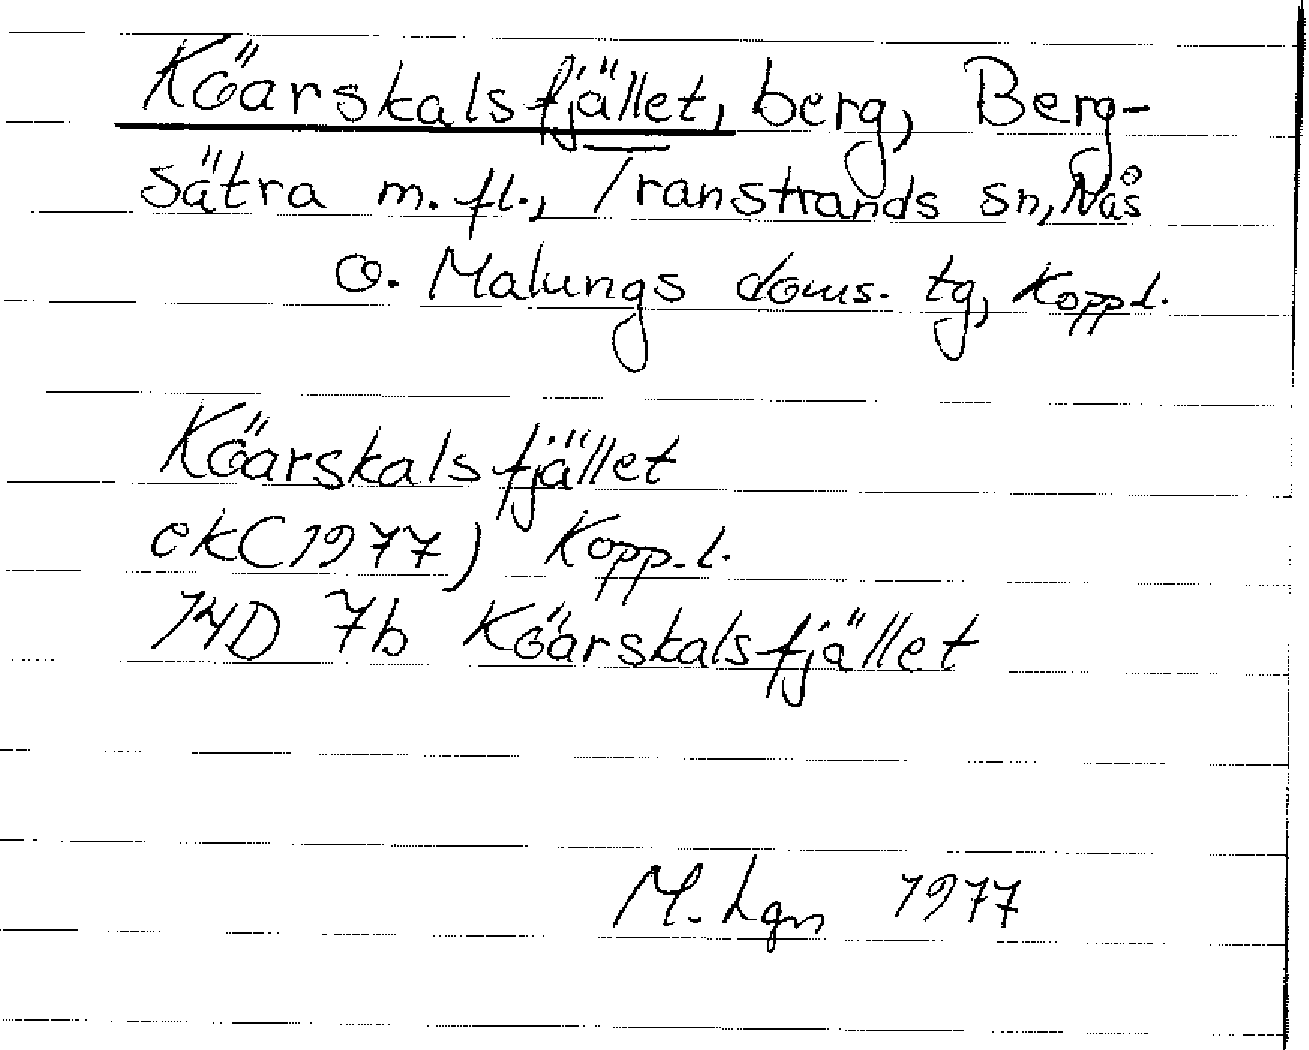 Köarskalsfjället, berg, Berg-
sätra m. fl., Transtrands sn, Nås
o. Malungs doms. tg, Kopp. l.
Köarskalsfjället
ek (1977) Kopp. l.
14D 7b Köarskalsfjället
M. Lgn 1977